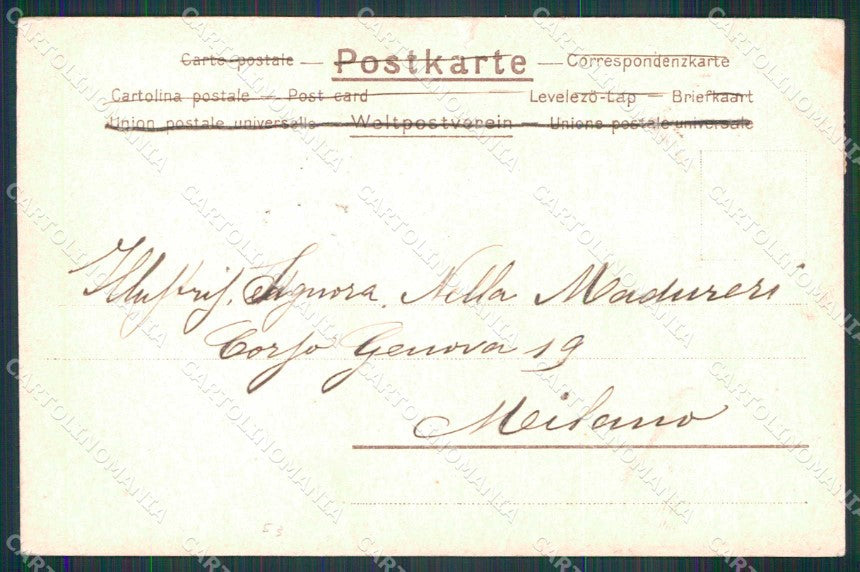 Carte postale — Postkarte — Correspondenzkarte
Cartolina postale — Post card Levelező-Lap — Briefkaart
Union postale universelle — Weltpostverein — Unione postale universale
Illustris. Signora Nella Madureri
Corso Genova 19
Milano
E3
CARTOLINOMANIA